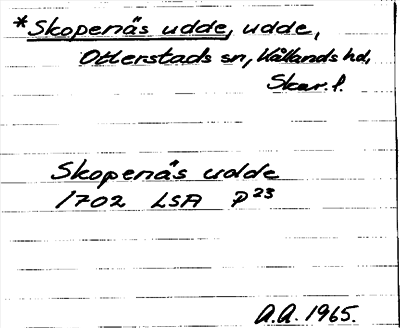 *Skopenäs udde, udde,
Otterstads sn, Kållands hd,
Skar. l.
Skopenäs udde
1702 LSA P23
A.A. 1965.